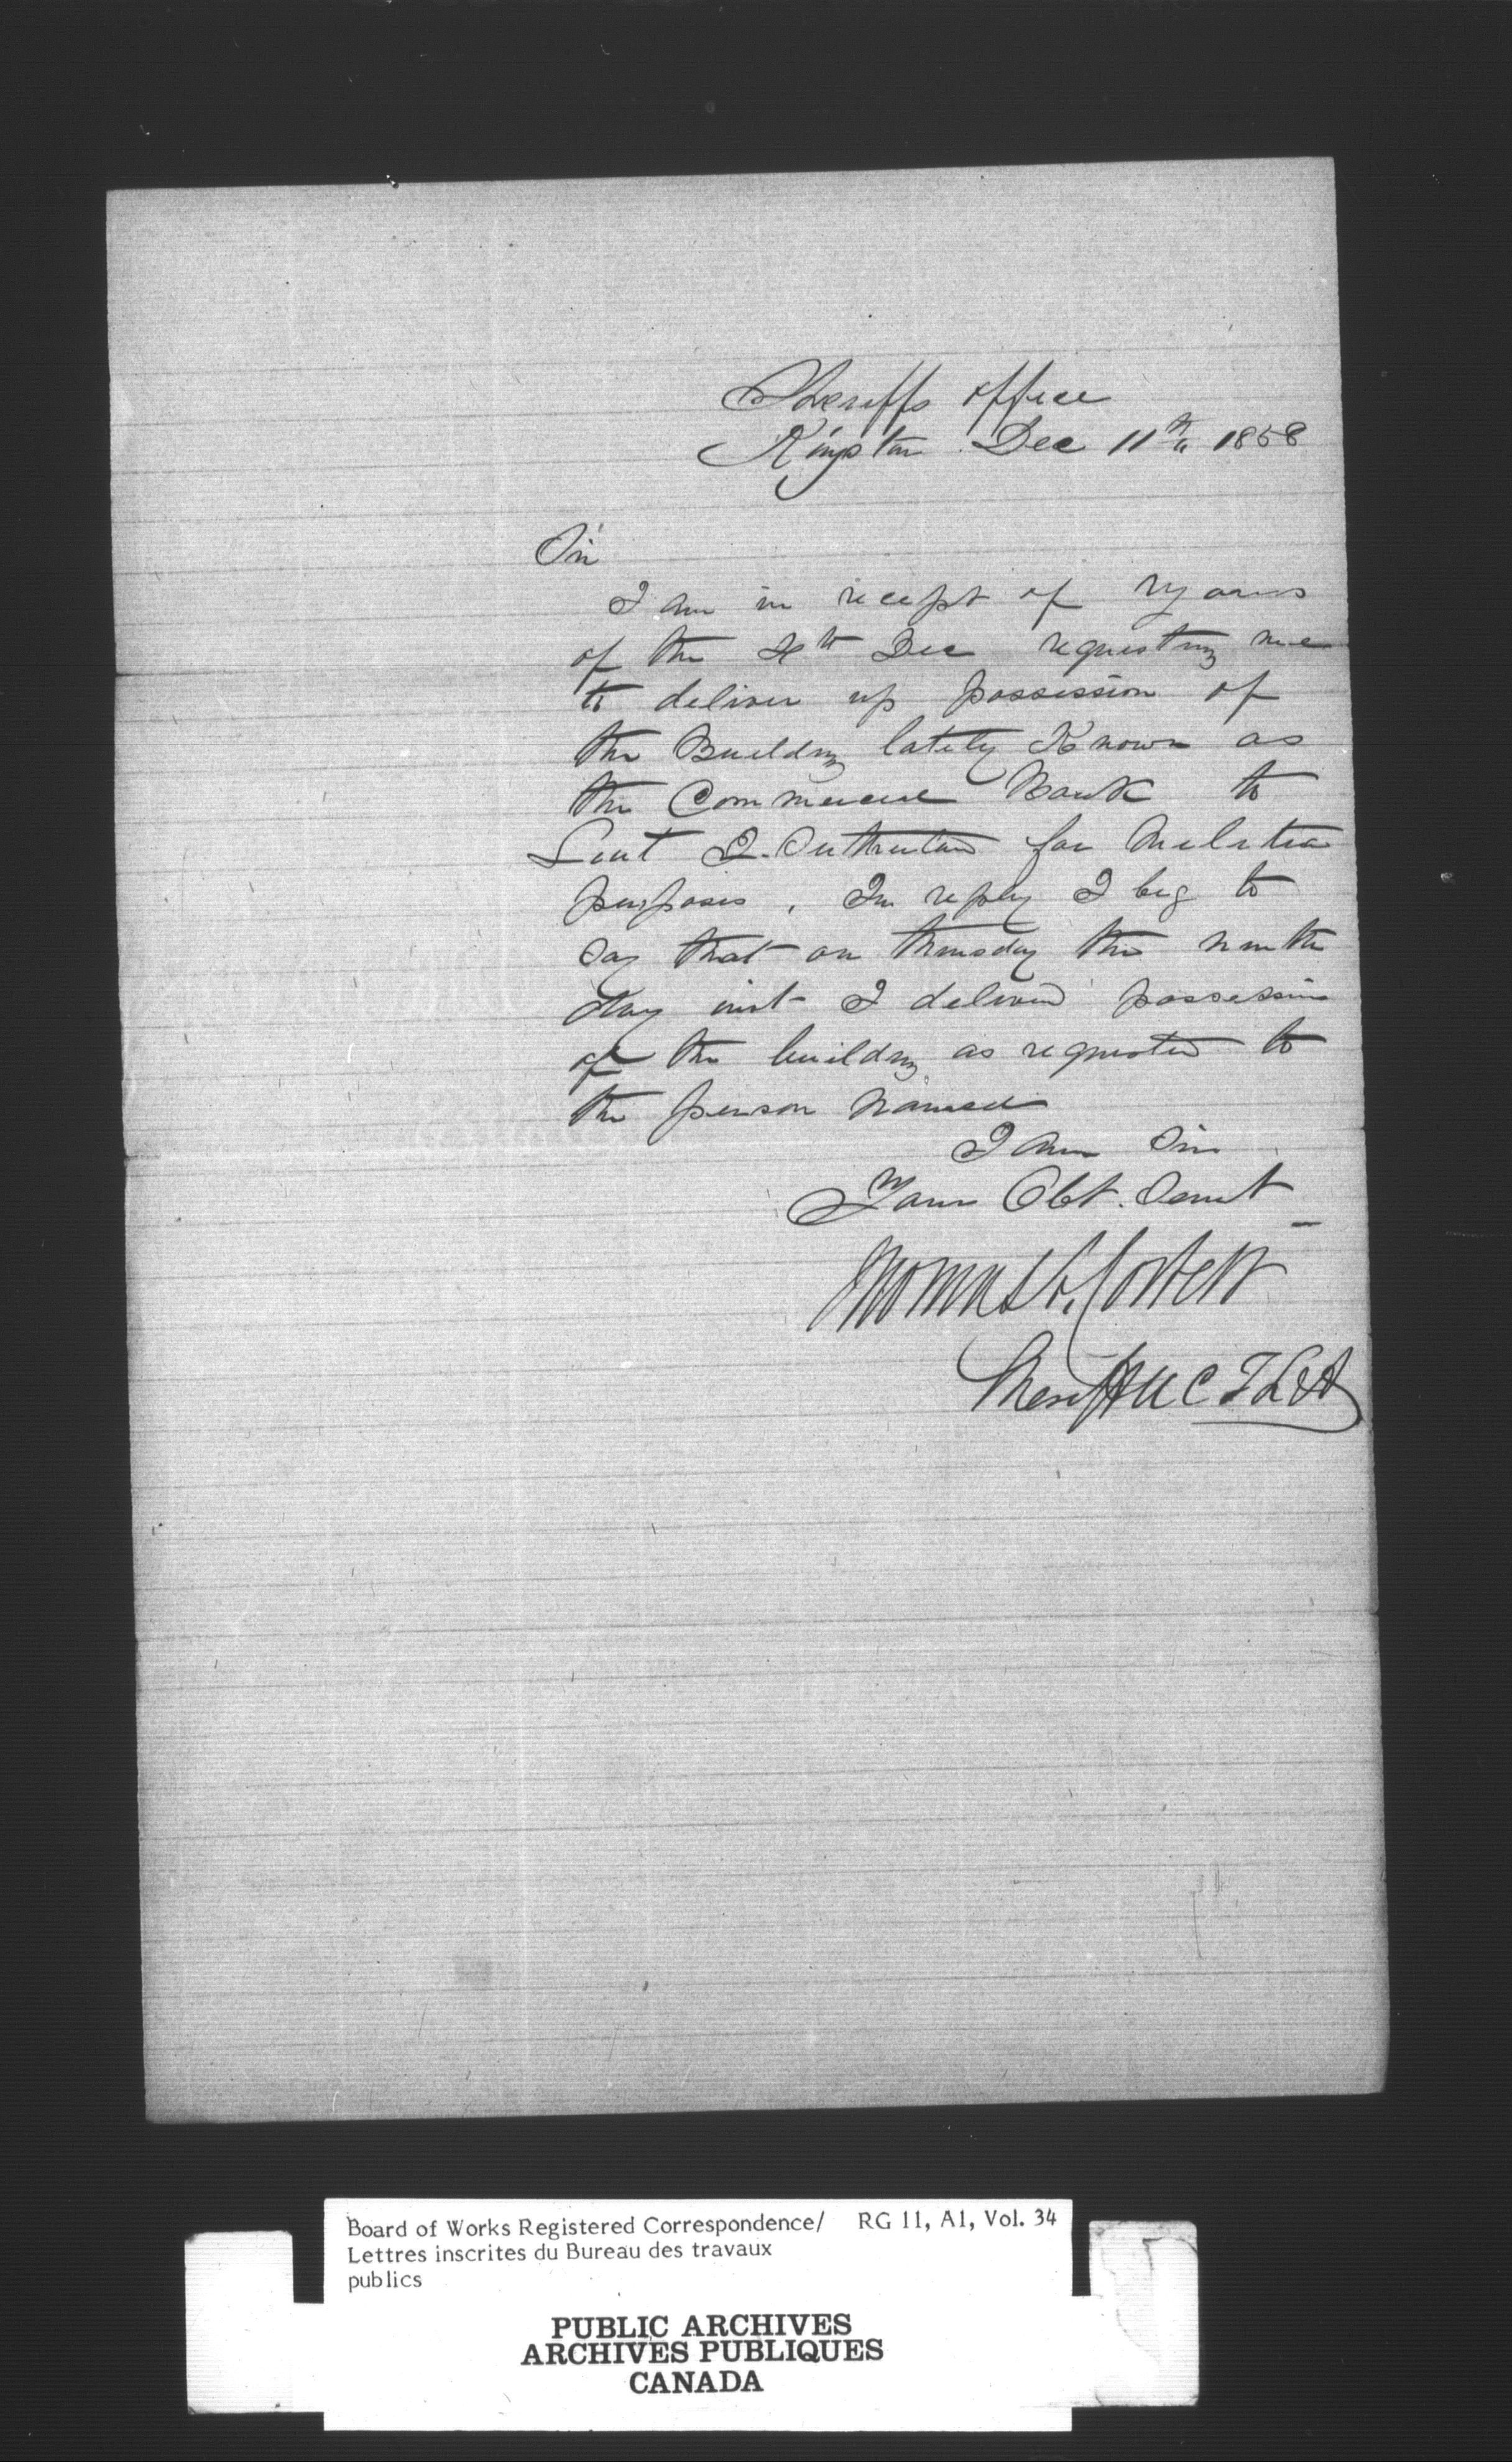 Sheriffs office
Kingston Dec 11th 1858
Sir
I am in receipt of yours
of the 4th Dec requesting me
to deliver up possession of
the Building lately Known as
the Commercial Bank to
Lieut Sutherland for Militia
purposes. In reply I beg to
say that on thursday the ninth
day inst I delivered possession
of the building as requested to
the person Named
I am Sir
Your Obt. Servt
Thomas A. Corbett
Sheriff U C F L & A
Board of Works Registered Correspondence/ RG 11, A1, Vol. 34
Lettres inscrites du Bureau des travaux
publics
PUBLIC ARCHIVES
ARCHIVES PUBLIQUES
CANADA